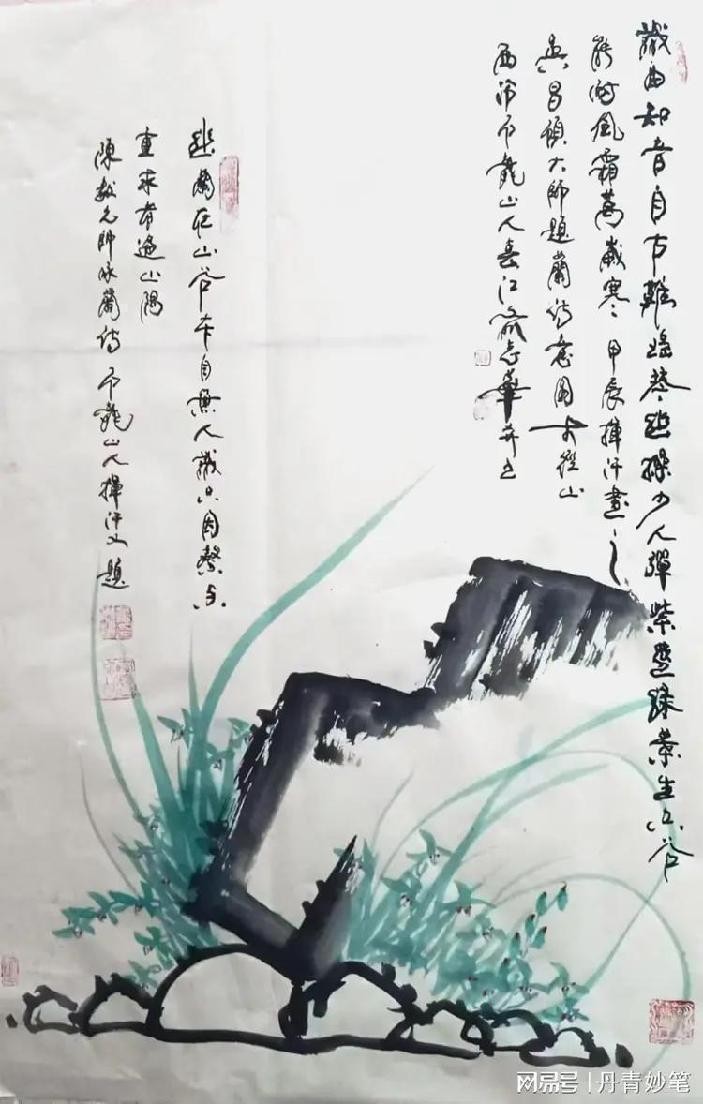 識曲知音自古難瑤琴幽操少人彈紫莖綠葉生空谷
能耐風霜萬歲寒 甲辰揮汗畫之
吳昌碩大師題蘭詩意圖於徑山
西 龍山人春江俞志華并
幽蘭在山谷本自無人識只因馨香
重求者遍山隅
陳毅元帥詠蘭詩 龍山人揮汗又題
网易号 | 丹青妙笔